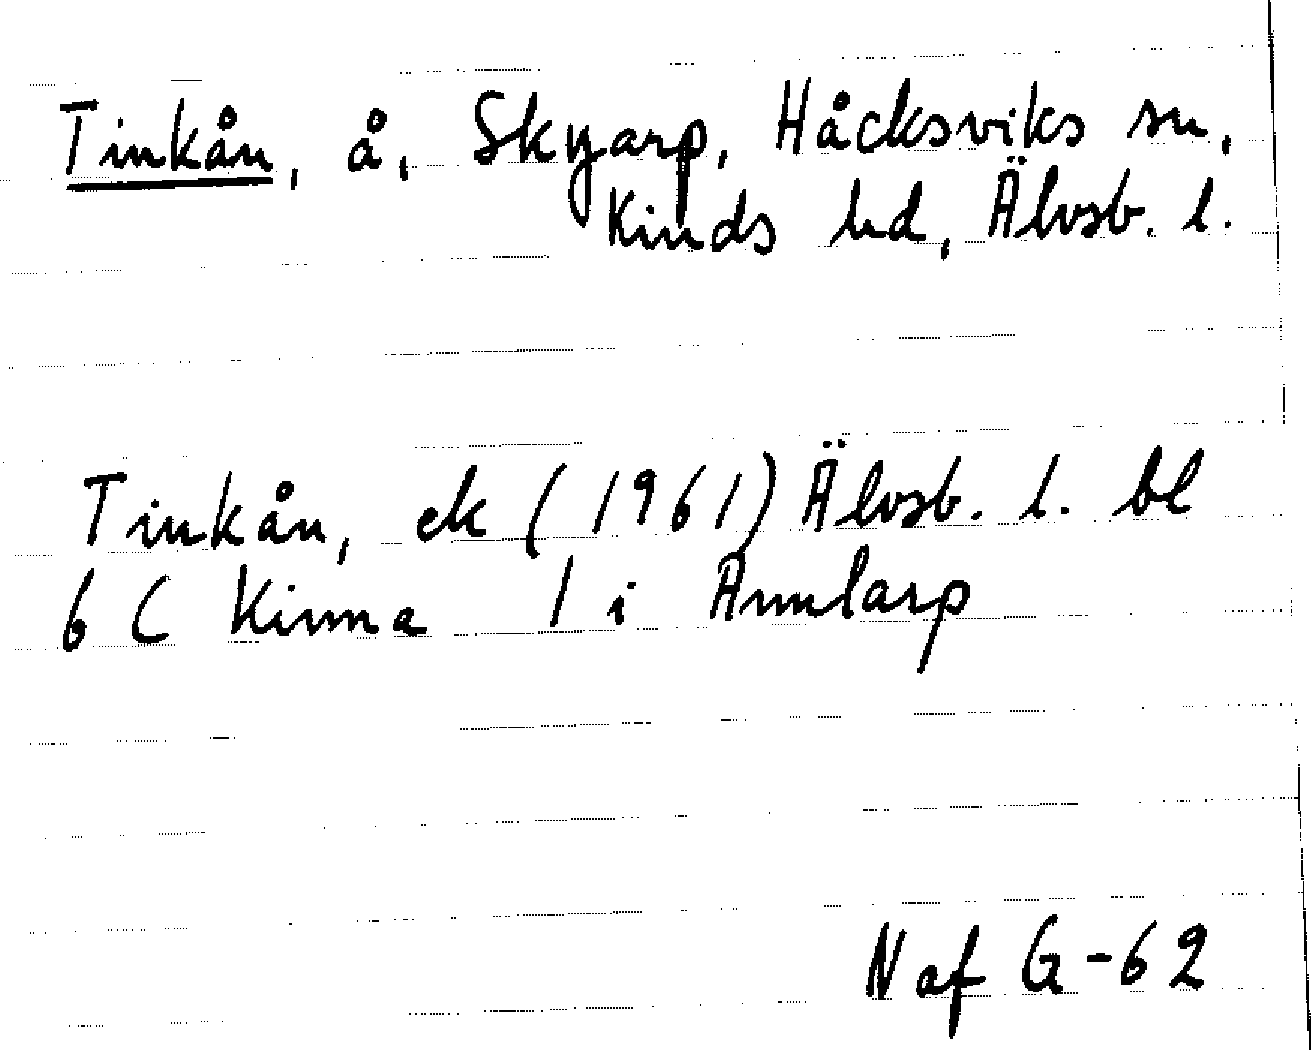 Tinkån, å, Skyarp, Håcksviks sn,
Kinds hd, Älvsb. l.
Tinkån, ek (1961) Älvsb. l. bl
6 C Kinna 1 i Annlarp
N af G-62